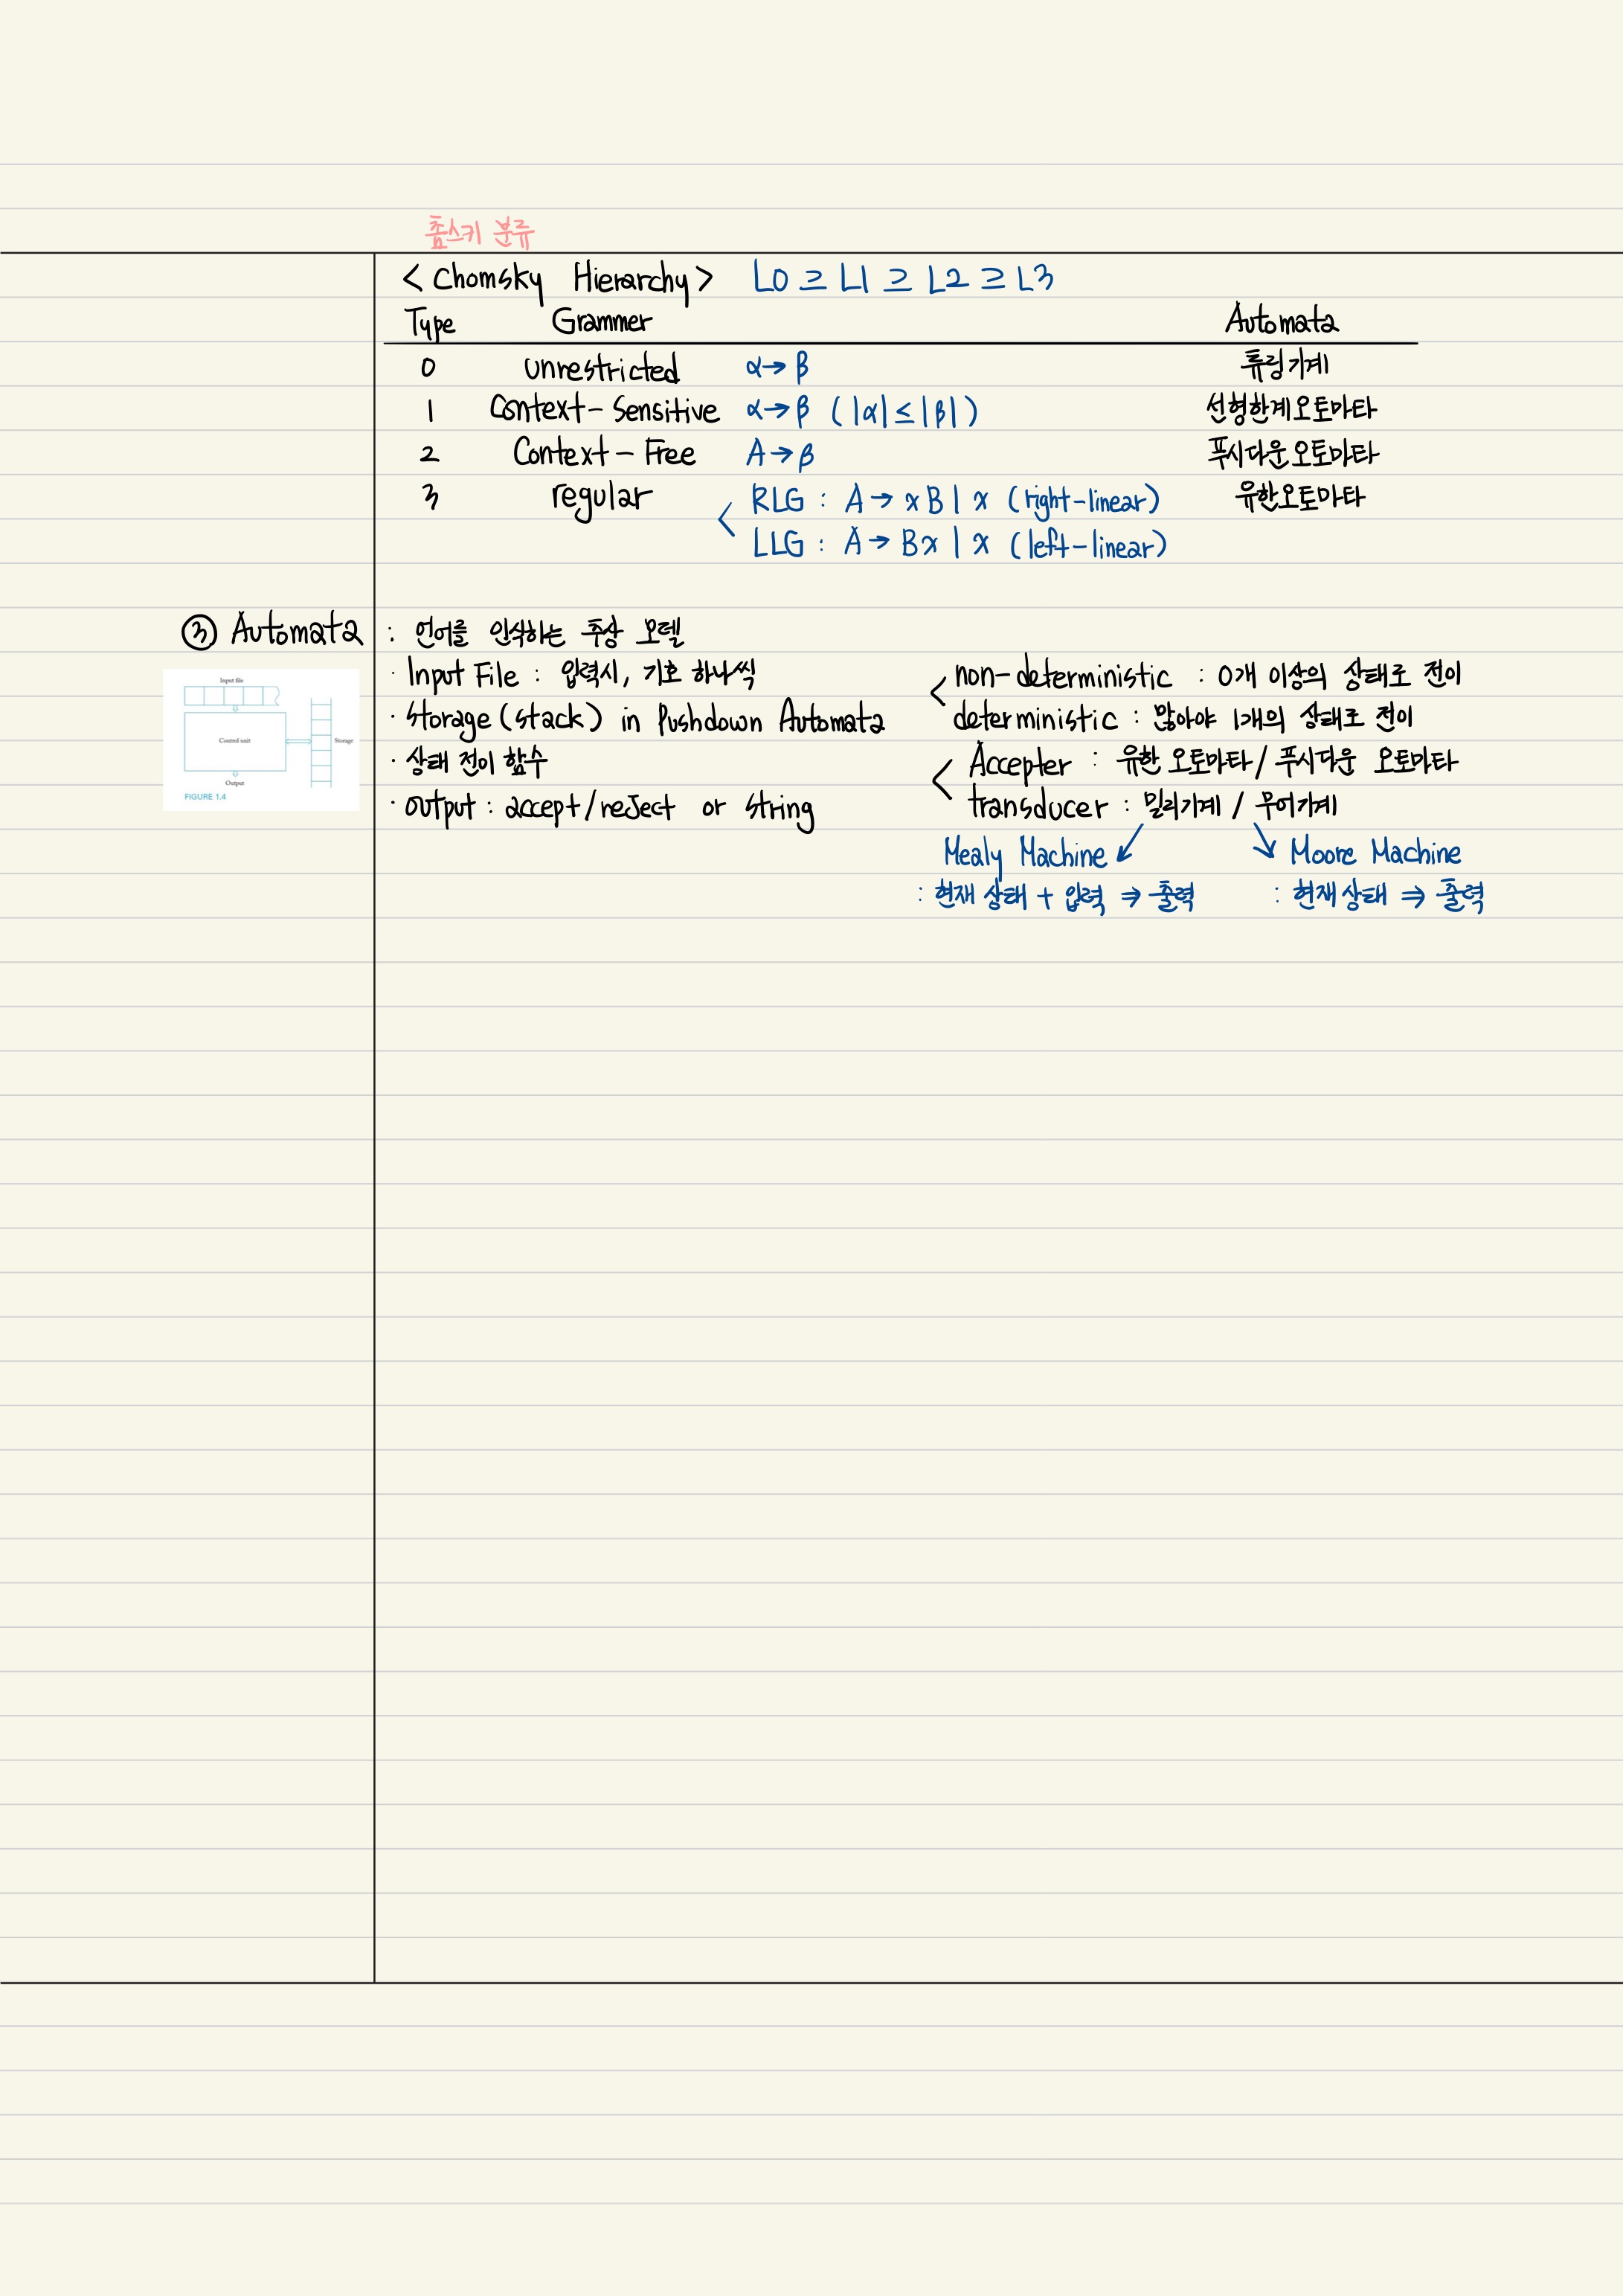 촘스키 분류
<Chomsky Hierarchy> L0 ⊇ L1 ⊇ L2 ⊇ L3
Type Grammer Automata
0 unrestricted α→β 튜링기계
1 Context-Sensitive α→β (|α|≤|β|) 선형한계오토마타
2 Context-Free A→β 푸시다운오토마타
3 regular < RLG : A→xB|x (right-linear) 유한오토마타
LLG : A→Bx|x (left-linear)
③ Automata : 언어를 인식하는 추상 모델
· Input File : 입력시, 기호 하나씩
· Storage(stack) in Pushdown Automata
· 상태 전이 함수
· output : accept/reject or string
< non-deterministic : 0개 이상의 상태로 전이
deterministic : 많아야 1개의 상태로 전이
< Accepter : 유한 오토마타/푸시다운 오토마타
transducer : 밀리기계 / 무어기계
Mealy Machine ↙ ↘ Moore Machine
: 현재 상태 + 입력 ⇒ 출력 : 현재상태 ⇒ 출력
Input file
Control unit
Storage
Output
FIGURE 1.4